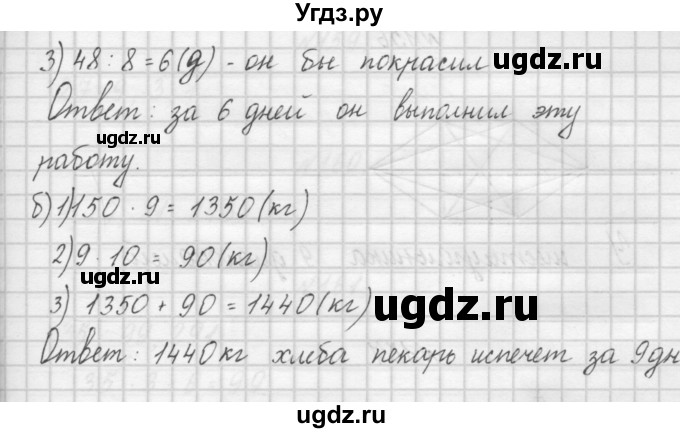 Угдз.ру
3) 48 : 8 = 6 (д) - он бы покрасил
ugdz.ru
Ответ: за 6 дней он выполнил эту
ugdz.ru
ugdz.ru
работу.
б) 1) 150 · 9 = 1350 (кг)
2) 9 · 10 = 90 (кг)
3) 1350 + 90 = 1440 (кг)
ugdz.ru
Ответ: 1440 кг хлеба пекарь испечет за 9 дн
ugdz.ru